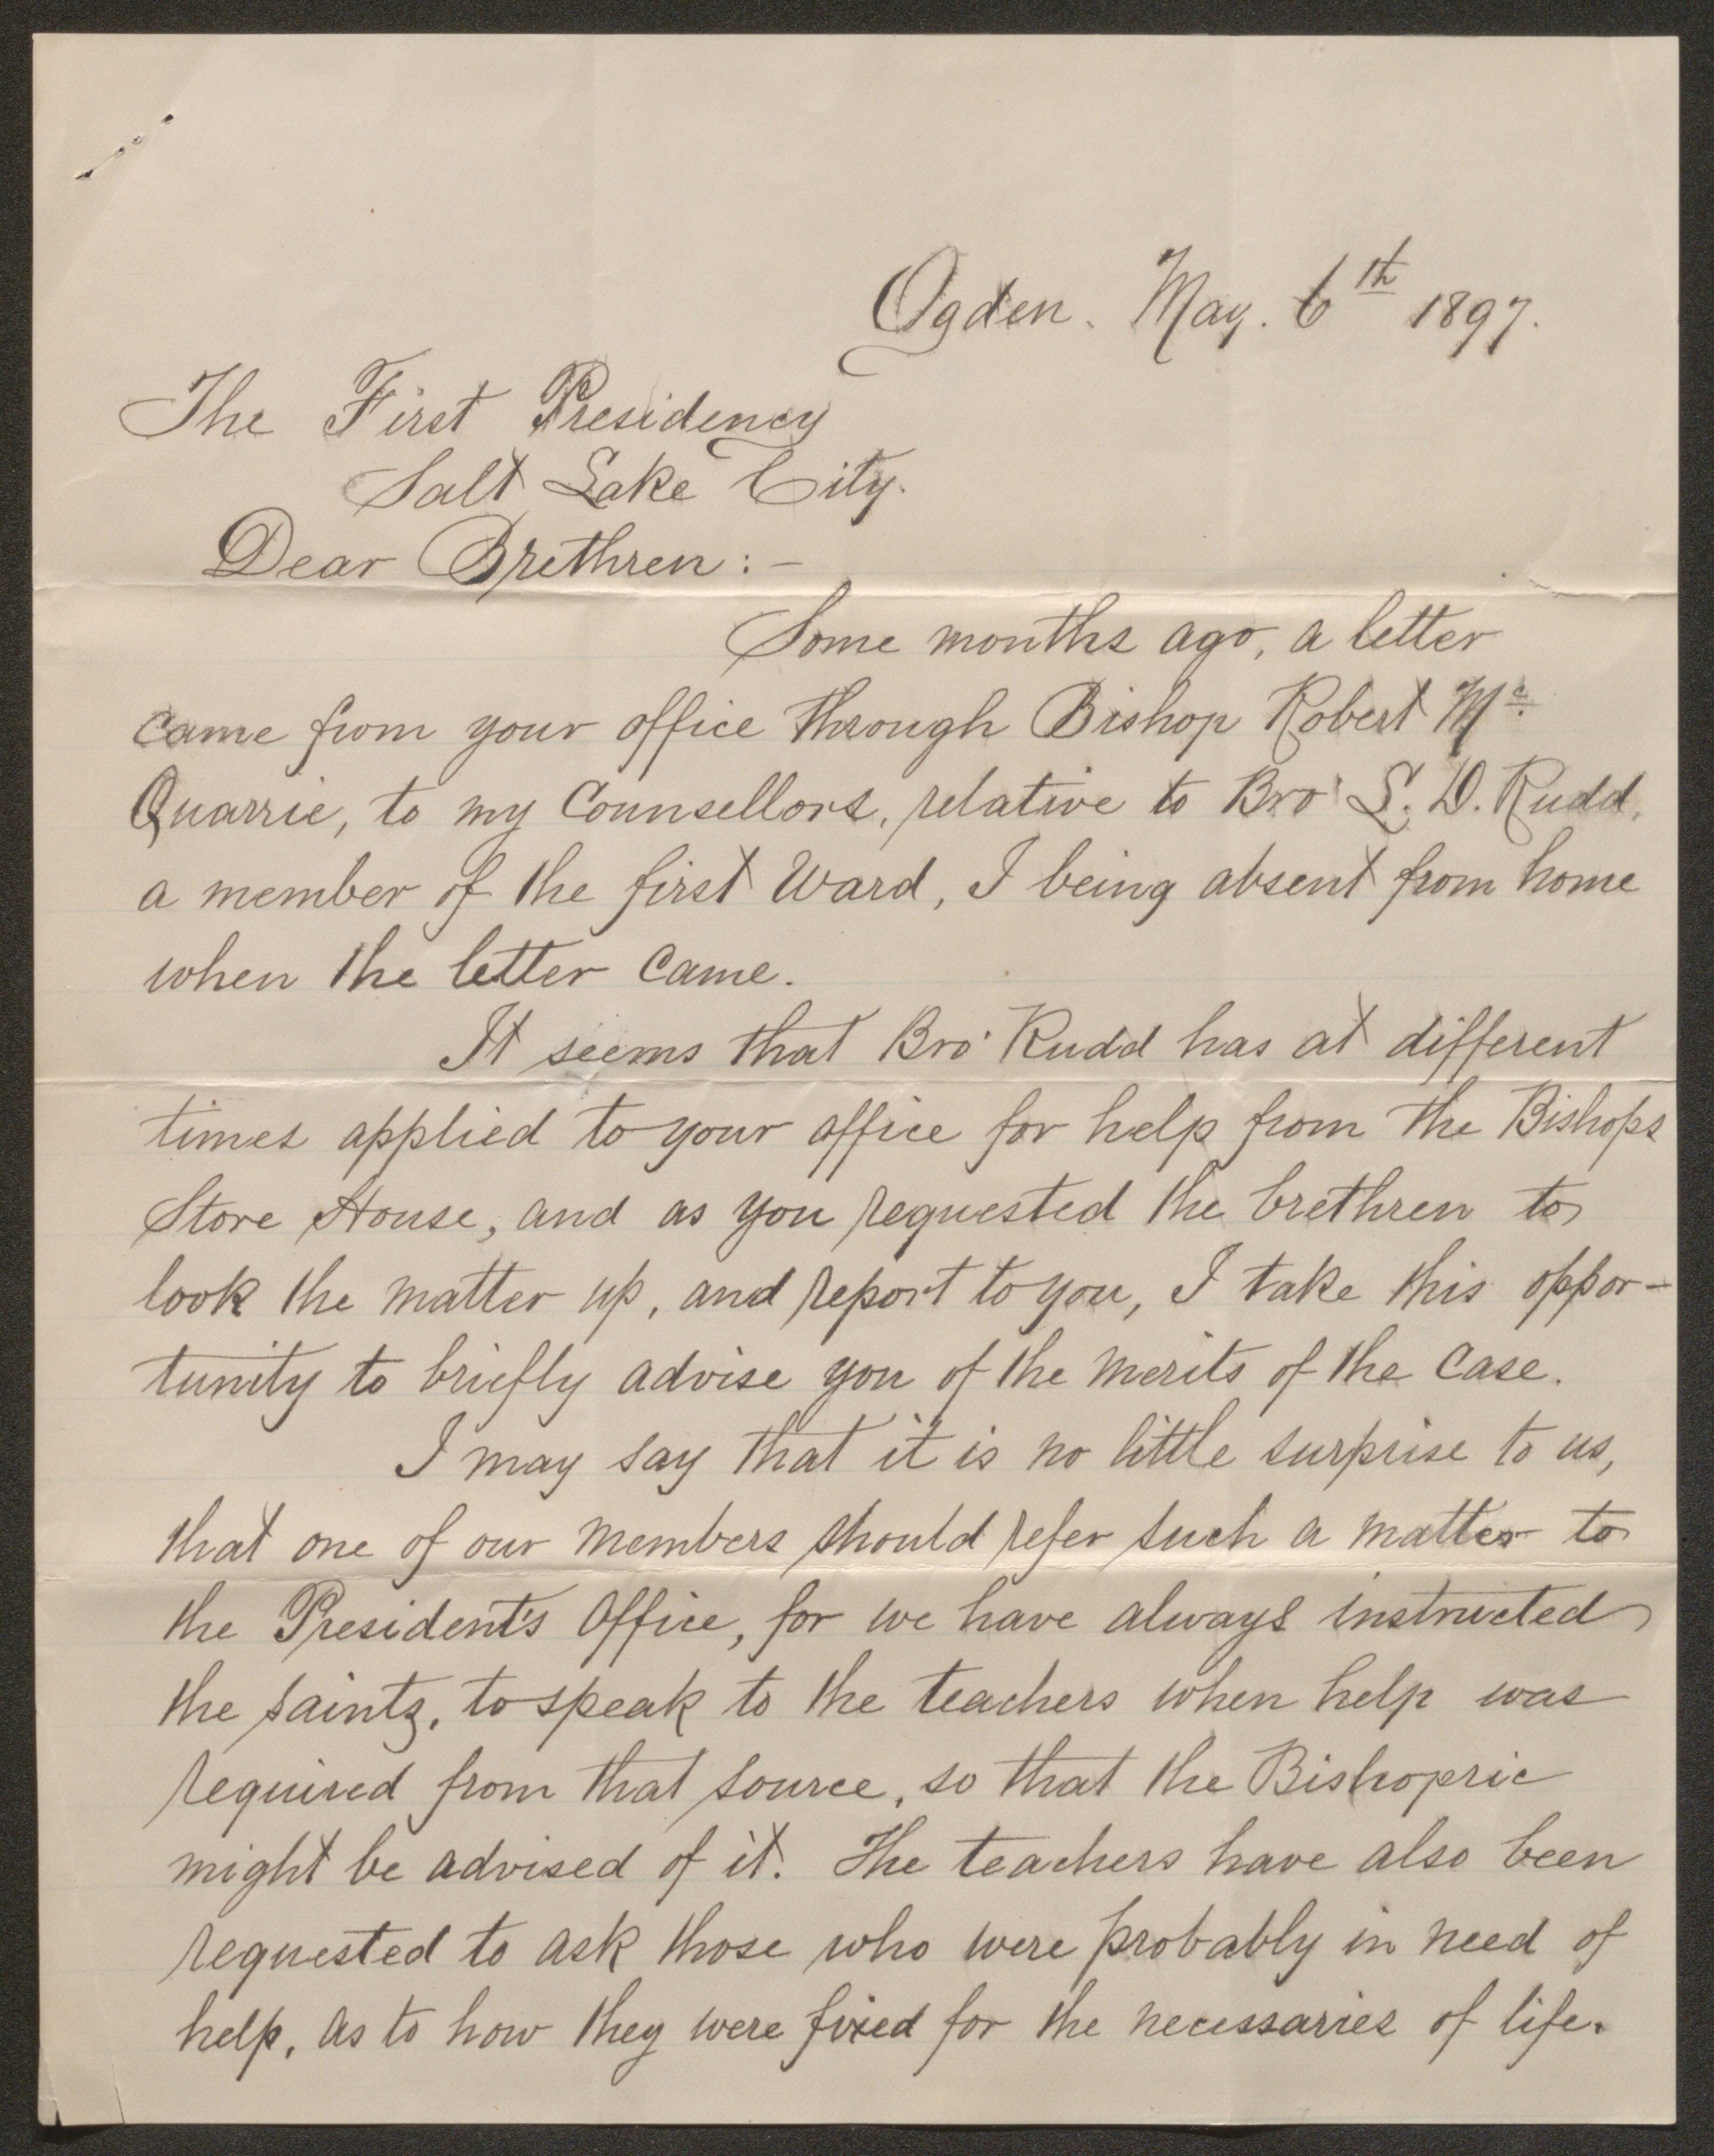 Ogden. May. 6th 1897.
The First Presidency
Salt Lake City.
Dear Brethren:-
Some months ago, a letter
came from your office through Bishop Robert Mc.
Quarrie, to my Counsellors, relative to Bro' L. D. Rudd,
a member of the first Ward, I being absent from home
when the letter came.
It seems that Bro' Rudd has at different
times applied to your office for help from the Bishops
Store House, and as you requested the brethren to
look the matter up, and report to you, I take this oppor-
tunity to briefly advise you of the merits of the case.
I may say that it is no little surprise to us,
that one of our members should refer such a matter to
the President's Office, for we have always instructed
the saints, to speak to the teachers when help was
required from that source, so that the Bishopric
might be advised of it. The teachers have also been
requested to ask those who were probably in need of
help, as to how they were fixed for the necessaries of life.